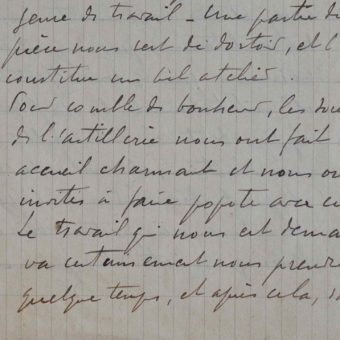 genre de travail – Une partie de
pièce nous sert de dortoir, et l'
constitue un bel atelier.
Pour comble de bonheur, les
de l'artillerie nous ont fait
accueil charmant et nous on
invités à faire popote avec
Le travail qui nous est deman
va certainement nous prendre
quelque temps, et après cela,